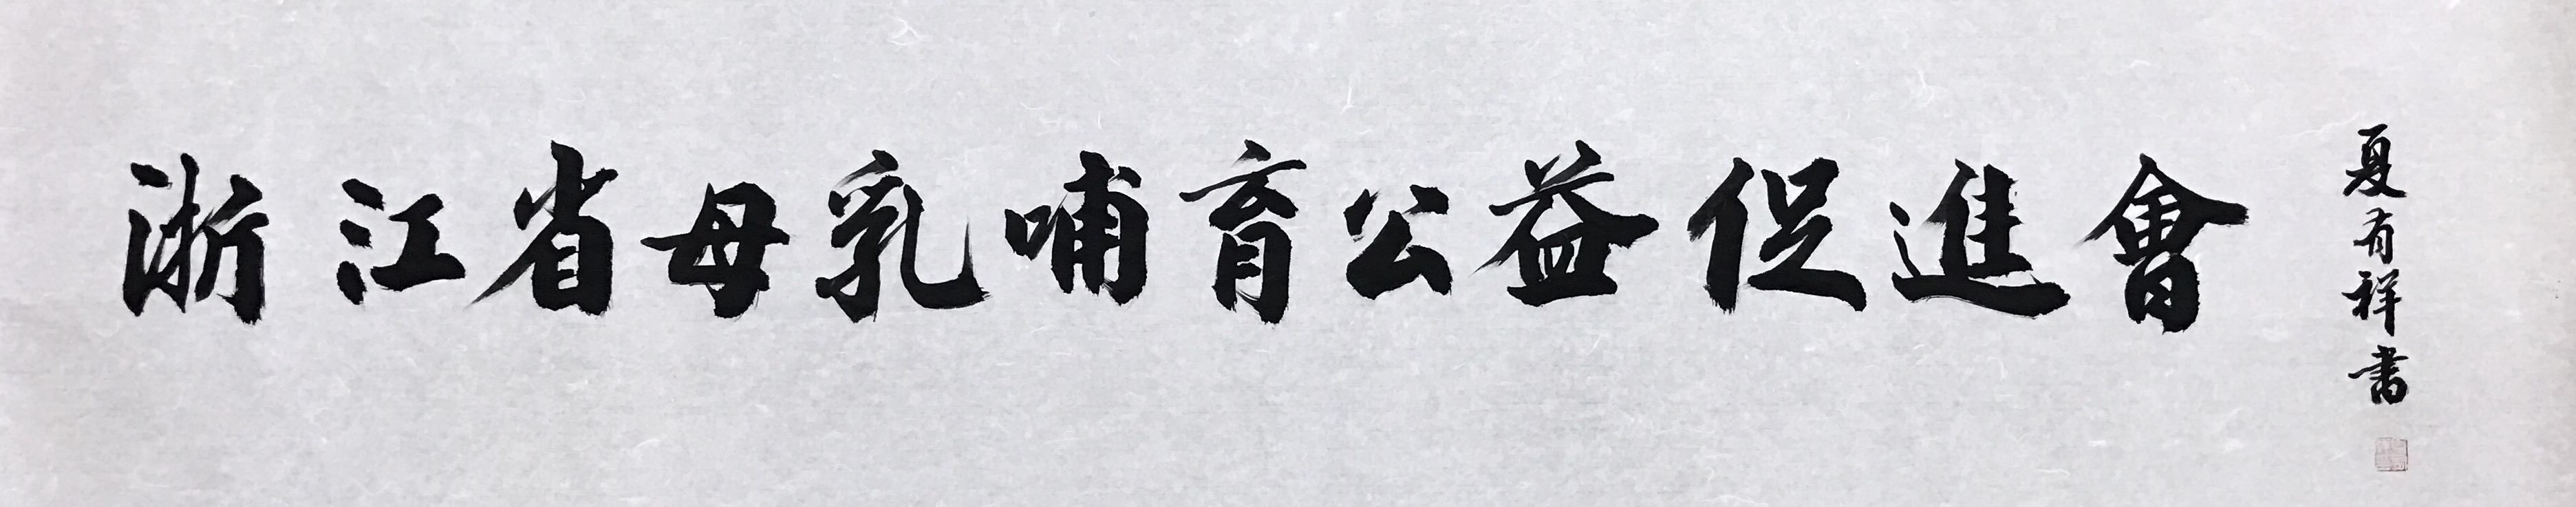 浙江省母乳哺育公益促進會
夏有祥書